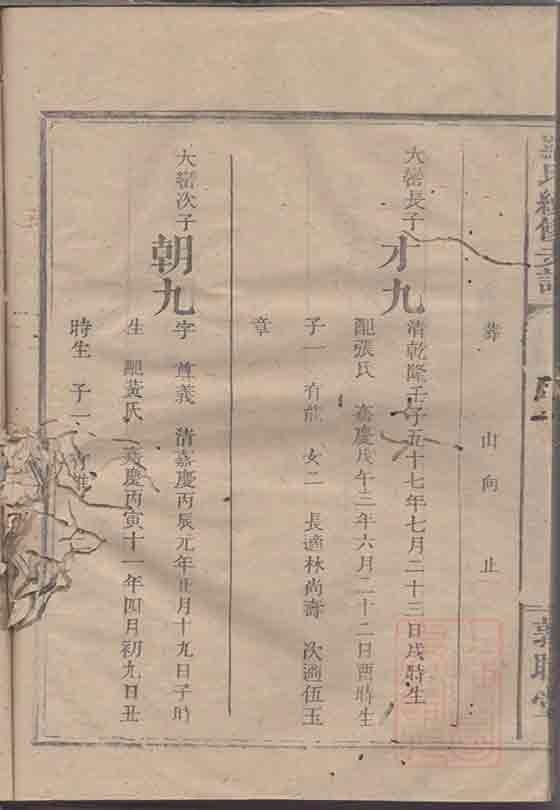 氏續修支譜
葬 山向 止
大巒長子
才九
清乾隆壬子五十七年七月二十三日戌時生
配張氏 嘉慶戊午三年六月二十二日酉時生
子一 有龍 女二 長適林尚壽 次適伍玉
章
大巒次子
朝九
字 尊義 清嘉慶丙辰元年正月十九日子時
生 配黃氏 嘉慶丙寅十一年四月初九日丑
時生 子一
敦睦堂